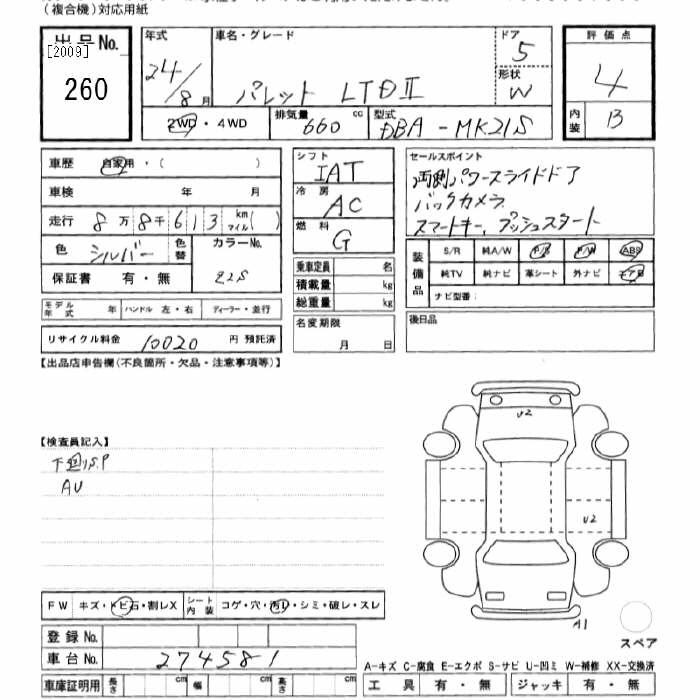 (複合機)対応用紙
出品No. [2009] 260
年式 24/8月
車名・グレード パレット LTDⅡ
ドア 5
形状 W
評価点 4
内装 B
2WD・4WD
排気量 660 cc
型式 DBA-MK21S
車歴 自家用・( )
車検 年 月
走行 8万8千613 km マイル( )
色 シルバー 色替
カラーNo. Z2S
保証書 有・無
モデル年式 年 ハンドル 左・右 ディーラー・並行
リサイクル料金 10020 円 預託済
シフト IAT
冷房 AC
燃料 G
乗車定員 名
積載量 kg
総重量 kg
名変期限 月 日
セールスポイント
両側パワースライドドア
バックカメラ
スマートキー、プッシュスタート
装備品 S/R 純A/W P/S P/W ABS
純TV 純ナビ 革シート 外ナビ エアB
ナビ型番:
後日品
【出品店申告欄(不良箇所・欠品・注意事項等)】
【検査員記入】
下回りS.P
AU
U2
U2
A1
スペア
FW キズ・トビ石・割レX シート内装 コゲ・穴・汚レ・シミ・破レ・スレ
登録No.
車台No. 274581
車庫証明用 長さ cm 幅 cm 高さ cm
A-キズ C-腐食 E-エクボ S-サビ U-凹ミ W-補修 XX-交換済
工具 有・無 ジャッキ 有・無